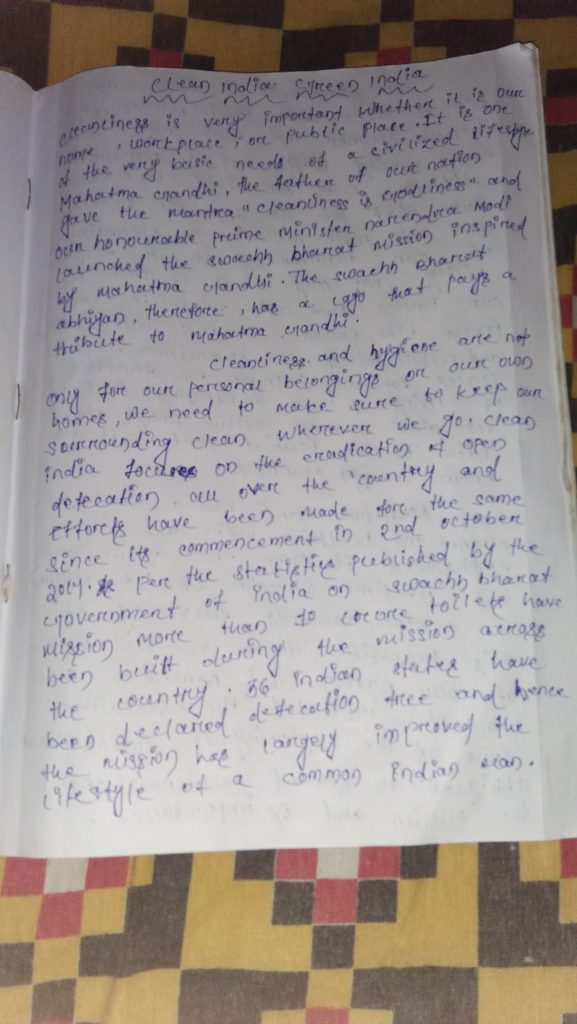 Clean India Green India
Cleanliness is very important whether it is our
home, workplace, or public place. It is one
of the very basic needs of a civilized lifestyle.
Mahatma Gandhi, the father of our nation
gave the mantra "cleanliness is Godliness" and
our honourable prime minister narendra Modi
launched the swachh bharat mission inspired
by mahatma Gandhi. The swachh Bharat
abhiyan, therefore, has a logo that pays a
tribute to mahatma Gandhi.
Cleanliness and hygiene are not
only for our personal belongings or our own
homes, we need to make sure to keep our
sorrounding clean wherever we go. clean
india focuses on the eradication of open
defecation all over the country and
efforts have been made for the same
since its commencement in 2nd october
2014. As per the statistics published by the
Government of india on swachh bharat
mission more than 10 crore toilets have
been built during the mission across
the country. 36 indian states have
been declared defecation free and hence
the mission has largely improved the
lifestyle of a common indian